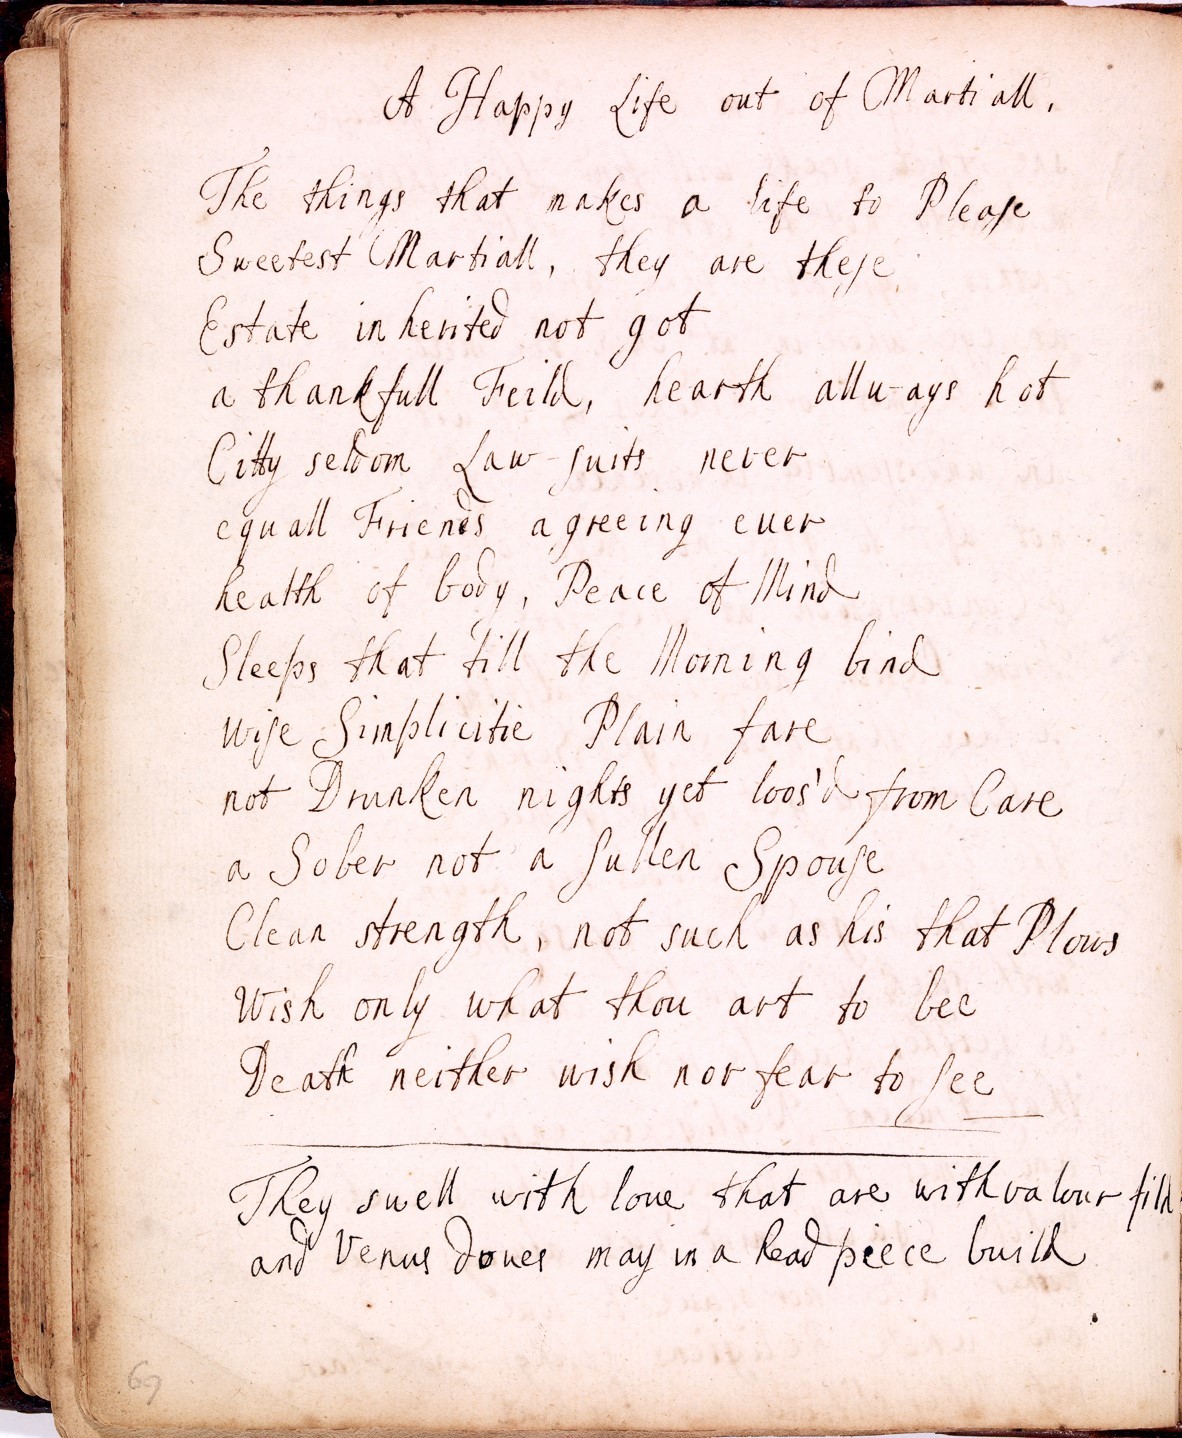 A Happy Life out of Martiall.
The things that makes a life to Please
Sweetest Martiall, they are these
Estate inherited not got
a thankfull Feild, hearth allways hot
Citty seldom Law-suits never
equall Friends agreeing euer
health of body, Peace of Mind
Sleeps that till the Morning bind
wise Simplicitie Plain fare
not Drunken nights yet loos'd from Care
a Sober not a sullen Spouse
Clean strength, not such as his that Plows
Wish only what thou art to bee
Death neither wish nor fear to see
They swell with loue that are with valour filld
and Venus doues may in a head piece build
69